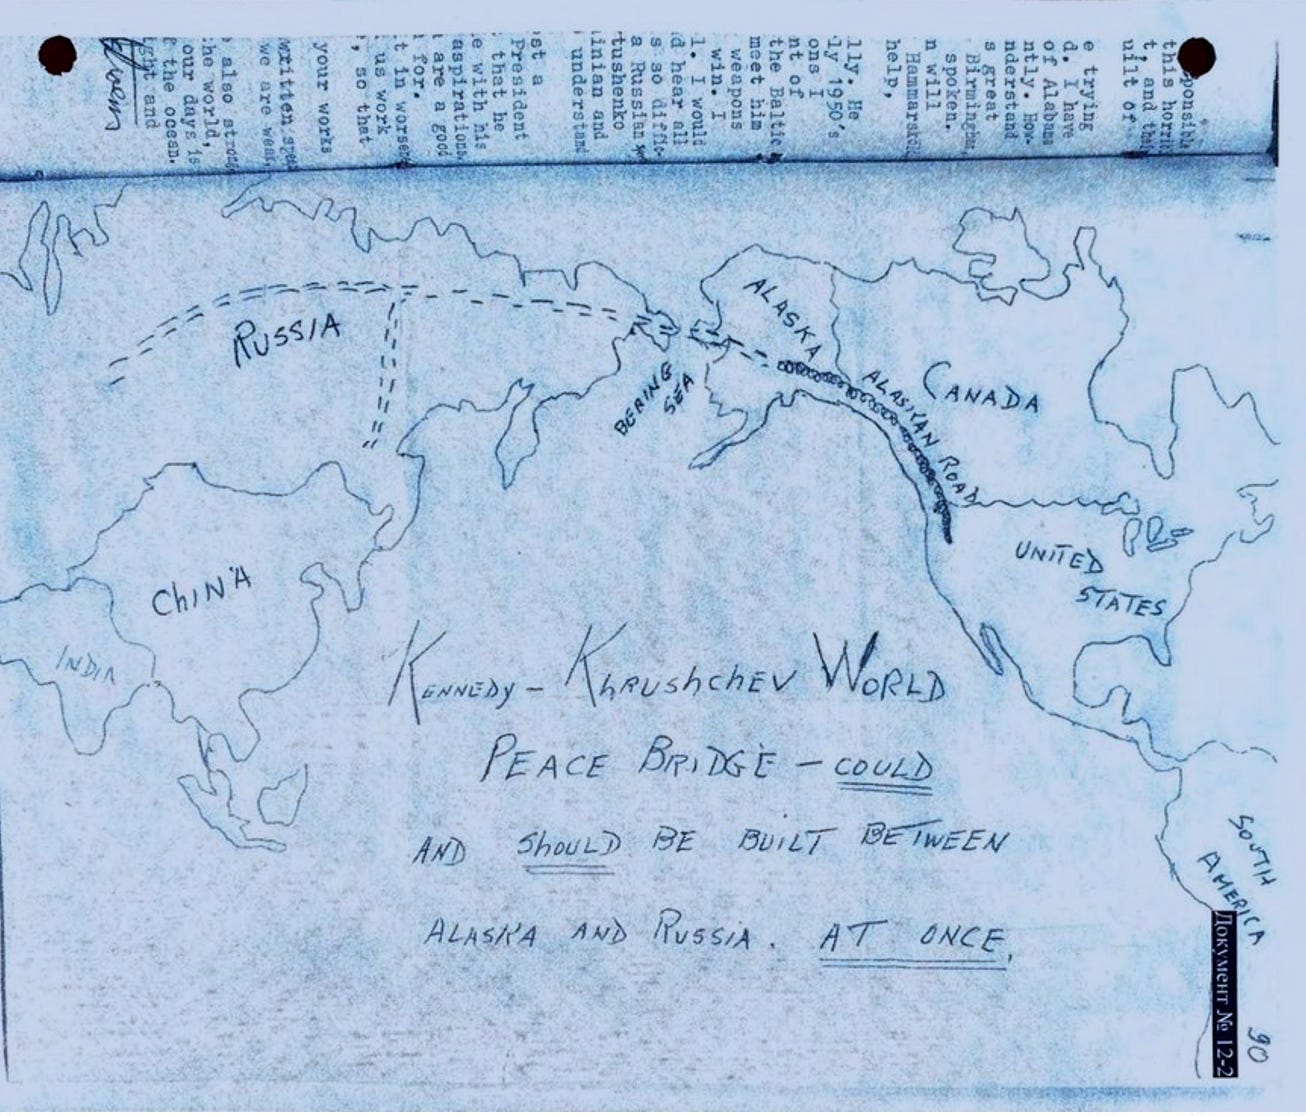 ponsible
this horri
t, and the
uilt of
e trying
d. I have
of Alabama
ntly. How-
nderstand
s great
Birmingham,
spoken.
n will
Hammarskj
help,
lly. He
ly 1950's
ons I
nt of
the Baltic
meet him
weapons
win. I
l. I would
d hear all
s so diffic-
a Russian,
tushenko
inian and
understand
st a
President
that he
e with his
aspirations.
are a good
for.
t in worse
us work
, so that
your works
written
we are weak,
also strong
he world,
our days is
the ocean.
ght and
RUSSIA
ALASKA
BERING
SEA
ALASKAN ROAD
CANADA
UNITED
STATES
CHINA
INDIA
KENNEDY – KHRUSHCHEV WORLD
PEACE BRIDGE – COULD
AND SHOULD BE BUILT BETWEEN
ALASKA AND RUSSIA. AT ONCE.
SOUTH
AMERICA
Документ № 12-2
90